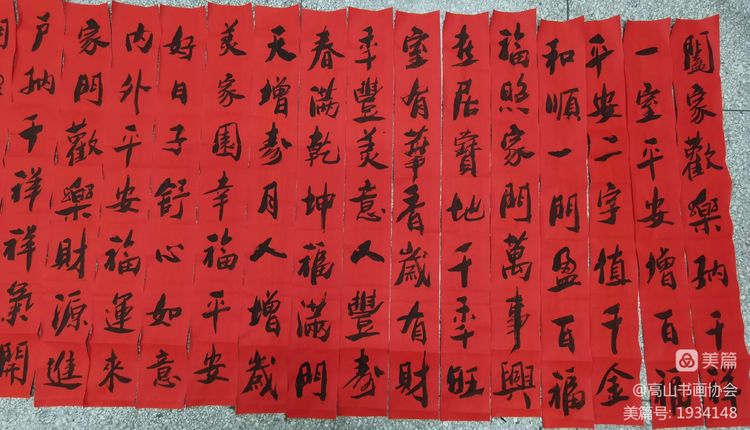 闔家歡樂納千福
一室平安增百福
平安二字值千金
和順一門盈百福
福照家門萬事興
在居寶地千季旺
室有華香歲有財
季豐美意人豐壽
春滿乾坤福滿門
天增壽月人增歲
美家園幸福平安
好日子舒心如意
内外平安福運來
家門歡樂財源進
戶納千祥祥氣開
美篇
@高山书画协会
美篇号: 1934148